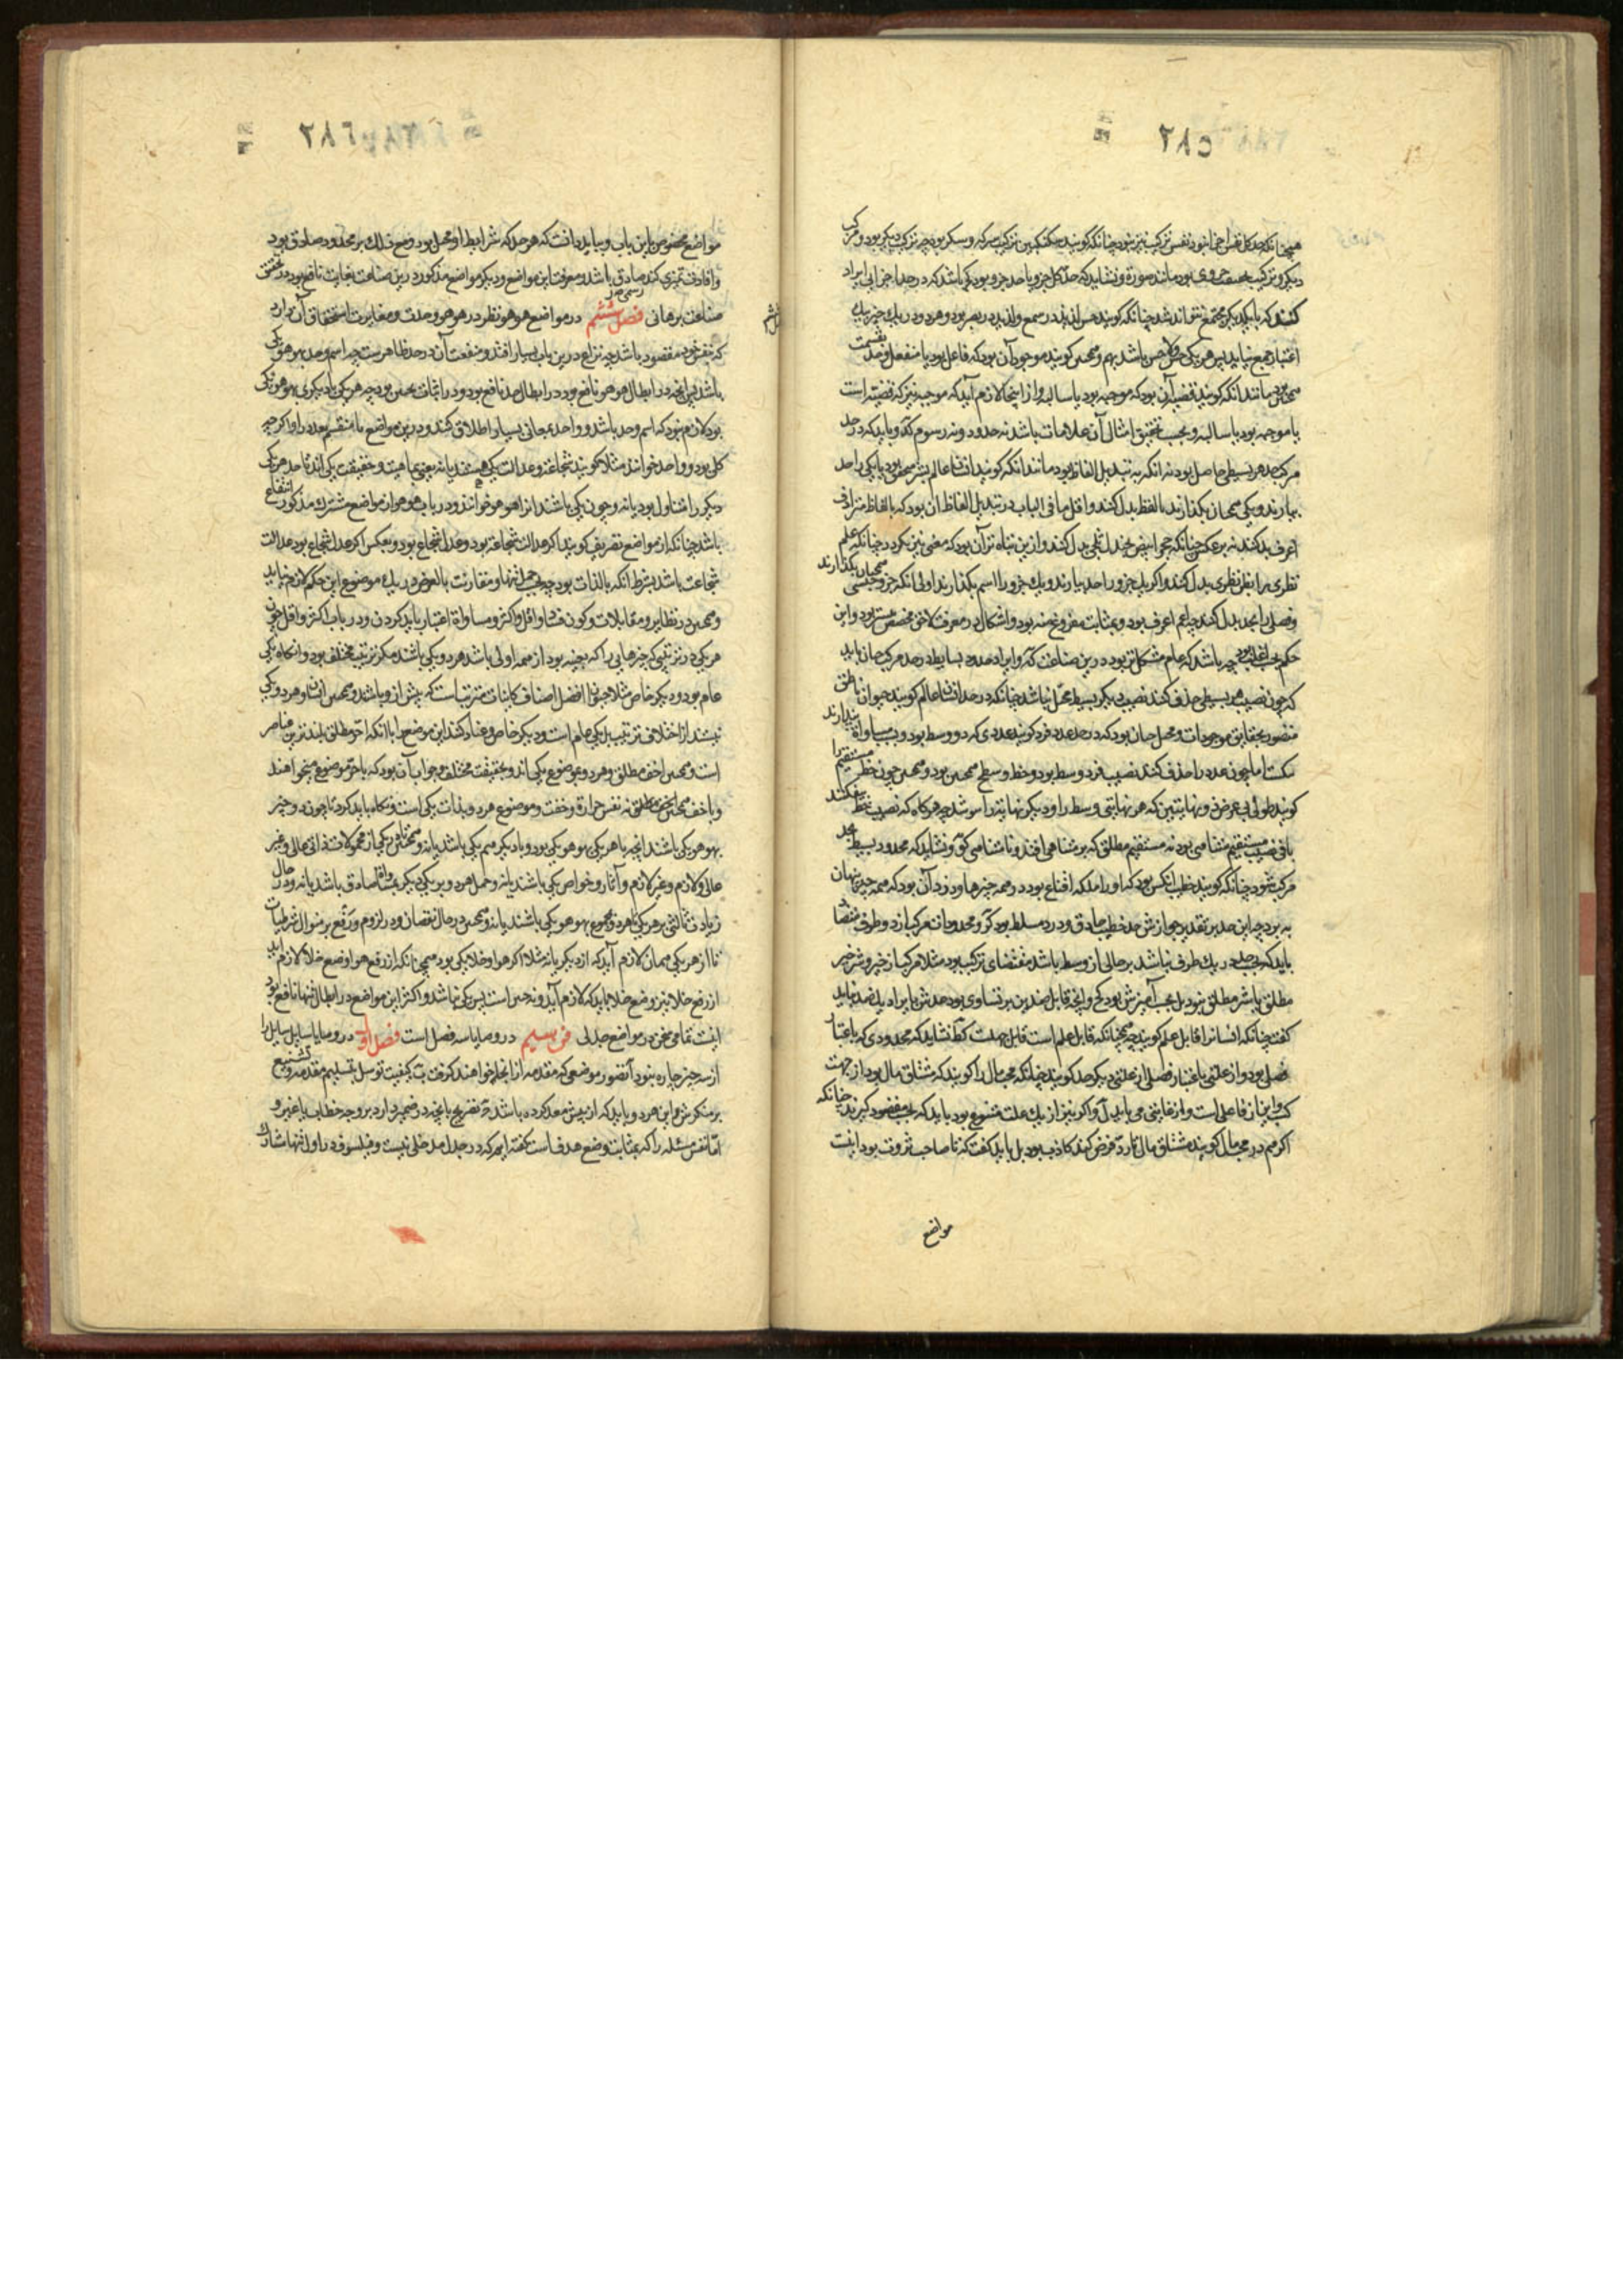 ٢٨٥
همچنانکه حد کل نفس اجزا نبود نفس ترکیب نیز نبود چنانکه گویند سکنگبین ترکیب سرکه و شکر بود چه ترکیب دیگر بود و مرکب
دیگر و ترکیب بود مانند صورة و نشاید که حد کل جزو یا حد جزو بود باشد که در حد اجزایی ایراد
کنند که با یکدیگر مجتمع نتوانند شد چنانکه گویند حس لذیذ در سمع و لذیذ در بصر بود و هر دو در یک چیز بیک
اعتبار جمع نیاید پس هر یکی حس و لا حس باشد بهم و همچنین گویند موجود آن بود که فاعل بود یا منفعل و حد بقسمت
همچنین بود مانند آنکه گویند قضیه آن بود که موجبه بود یا سالبه و از اینجا لازم آید که موجبه نیز که قضیه است
یا موجبه بود یا سالبه و بحسب تحقیق امثال آن علامات باشد نه حدود و نه رسوم و باید که در حد
مرکب حد هر بسیطی حاصل بود نه آنکه به تبدیل الفاظ بود مانند آنکه گویند انسان عالم بشر متحقق بود یا یکی را حد
بیارند و یکی همچنان بگذارند یا لفظ بدل کنند و اقل ما فی الباب در تبدیل الفاظ آن بود که با لفاظ مترادف
اعرف بدل کنند نه بر عکس چنانکه حجر ابیض بجندل ثلجی بدل کنند و ازین تباه تر آن بود که معنی نیز بگردد چنانکه علم
نظری را بظن نظری بدل کنند و اگر یک جزو را حد بیارند و یک جزو را اسم بگذارند اولی آنکه جزو جنسی همچنان بگذارند
و فصلی را بحد بدل کنند چه اعم اعرف بود و بمثابت مفروغ عنه بود و اشکال در معرفت لاحق مخصص بیشتر بود و این
حکم بحسب اغلب بود چه باشد که عام مشکل تر بود در این صناعت و ایراد حدود بسایط در حد مرکب چنان باید
که چون نصیب هر بسیطی حذف کنند نصیب دیگر بسیط مختل نباشد چنانکه در حد انسان عالم گویند حیوان ناطق
متصور بحقایق موجودات و مختل چنان بود که در حد عدد فرد گویند عددی که ذو وسط بود و بحسب مساواة بپندارند
نکتست اما چون عدد را حذف کنند نصیب فرد وسط بود و خط و سطح همچنین بود و همچنین چون خط مستقیم را
گویند طولی بی عرض ذو نهایتین که هر نهایتی وسط را و دیگر نهایت را سر شد چه هر گاه که نصیب خط بیفکنند
باقی نصیب مستقیم متناهی بود نه مستقیم مطلق که بر متناهی افتد و نا متناهی و نشاید که محدود بسیط بحد
مرکب شود چنانکه گویند خطیب آنکس بود که او را ملکه اقناع بود در همه چیزها و دزد آن بود که همه چیز پنهان
به برد چه این حد بر تقدیر جوازش حد خطیب حاذق و دزد مسلط بود و محدودات مرکب از دو طرف متضاد
باید که بحسب حد در یک طرف نباشد بر حالی از وسط باشد مقتضای ترکیب بود مثلا مرکب از خیر و شر خیر
مطلق یا شر مطلق نبود بل بحسب آمیزش بود و آنچه قابل ضدین بر تساوی بود حدش بایراد یک ضد نباید
گفت چنانکه انسان را قابل علم گویند چه همچنانکه قابل علم است قابل جهلست و نشاید که محدودی که باعتبار
فصلی بود و از علتی باعتبار فصلی از علتی دیگر حد گویند چنانکه محب مال را گویند که مشتاق مال بود از جهت
کسب و این از فاعلی است و از غایتی می باید و اگر نیز از یک علت متنوع بود باید که بحسب مقصود گیرند چنانکه
اگر هم در محب مال گویند مشتاق مال تا رد قرض کند کاذب بود بل باید گفت که تا صاحب ثروت بود اینست
مواضع
٢٨٦
مواضع مخصوص باین باب و بباید دانست که هر حد که شرایط او مختل بود وضع ذلک بر محدود صادق بود
و افادت تمیزی کند صادق باشد و معرفت این مواضع و دیگر مواضع مذکور درین صناعت بغایت نافع بود در تحقیق
صناعت برهانی فصل ششم در مواضع هو هو نظر در هو هو و وحدت و مغایرت استحقاق آن دارد
که بنفس خود مقصود باشد چه نزاع درین باب بسیار افتد و منفعت آن در حد ظاهرست چه اسم و حد بهو هو یکی
باشد پس آنچه در ابطال هو هو نافع بود در ابطال حد نافع بود و در اثبات همچنین بود چه هر یکی یا دیگری بهو هو یکی
بود لازم نبود که اسم و حد باشد و واحد بمعانی بسیار اطلاق کنند و درین مواضع ما منقسم بعدد را و اگر چه
کلی بود واحد خوانند مثلا گویند شجاعت و عدالت یکی هستند یا نه یعنی بماهیت و حقیقت یکی اند تا حد هر یکی
دیگر را متناول بود یا نه و چون یکی باشند آنرا هو هو خوانند و در باب هو هو از مواضع مشترک مذکور انتفاع
باشد چنانکه از مواضع تصریف گویند اگر عدالت شجاعت بود و عدل شجاع بود و بعکس اگر عدل شجاع بود عدالت
شجاعت باشد بشرط آنکه بالذات بود چه بحسب حمل تنها و مقارنت بالعرض در یک موضوع این حکم لازم نیاید
و همچنین در نظایر و مقابلات و کون و فساد و اقل و اکثر و مساواة اعتبار باید کردن و در باب اکثر و اقل چون
هر یکی در ترتیبی که چیزهایی را که بعینه بود از همه اولی باشد هر دو یکی باشند مگر ترتیب مختلف بود و آنگاه یکی
عام بود و دیگر خاص مثلا حیوان افضل اصناف کاینات مترتباست که پیش ازو باشد و همچنین انسان و هر دو یکی
نیستند از اختلاف ترتیب بل یکی عام است و دیگر خاص و عناد کنند این موضع را باآنکه احر مطلق بلندترین عناصر
است و همچنین اخف مطلق و هر دو بموضوع یکی اند و بحقیقت مختلف و جواب آن بود که با حر موضوع میخواهند
و با خف همچنین مطلق نه نفس حرارة و خفت و موضوع هر دو بذات یکی است و نگاه باید کرد تا چون دو چیز
بهو هو یکی باشند آنچه با هر یکی بهو هو یکی بود و با دیگر هم یکی باشد یا نه و همچنین هر یکی از محمولات ذاتی عالی و غیر
عالی و لازم و غیر لازم و آثار و خواص یکی باشند یا نه و حمل هر دو بر یکی دیگر بمساوات صادق باشد یا نه و در حال
زیادت ثالثی بر هر یکی هر دو مجموع بهو هو یکی باشند یا نه و همچنین در حال نقصان و در لزوم و رفع بر منوال شرطیات
تا از هر یکی همان لازم آید که از دیگر یا نه مثلا اگر هوا و خلا یکی بود همچنانکه از رفع هوا وضع خلا لازم آید
از رفع خلا نیز وضع خلا باید که لازم آید و نه چنین است پس یکی نباشند و اکثر این مواضع در ابطال تنها نافع بود
اینست تمامی سخن در مواضع جدلی فن سیم در وصایا سه فصل است فصل اول در وصایا سایل سایل را
از سه چیز چاره نبود آ تصور موضعی که مقدمه از آنجا خواهند گرفت ب کیفیت توسل بتسلیم مقدمه و تشنیع
بر منکرش و این هر دو باید که از پیش معد کرده باشد ج تصریح بآنچه در ضمیر دارد بر وجه خطاب با غیر و
اما نفس مسئله را که بمثابت وضع هدف است گفته ایم که در جدل مدخلی نیست و فیلسوف در اول تنها مشارک